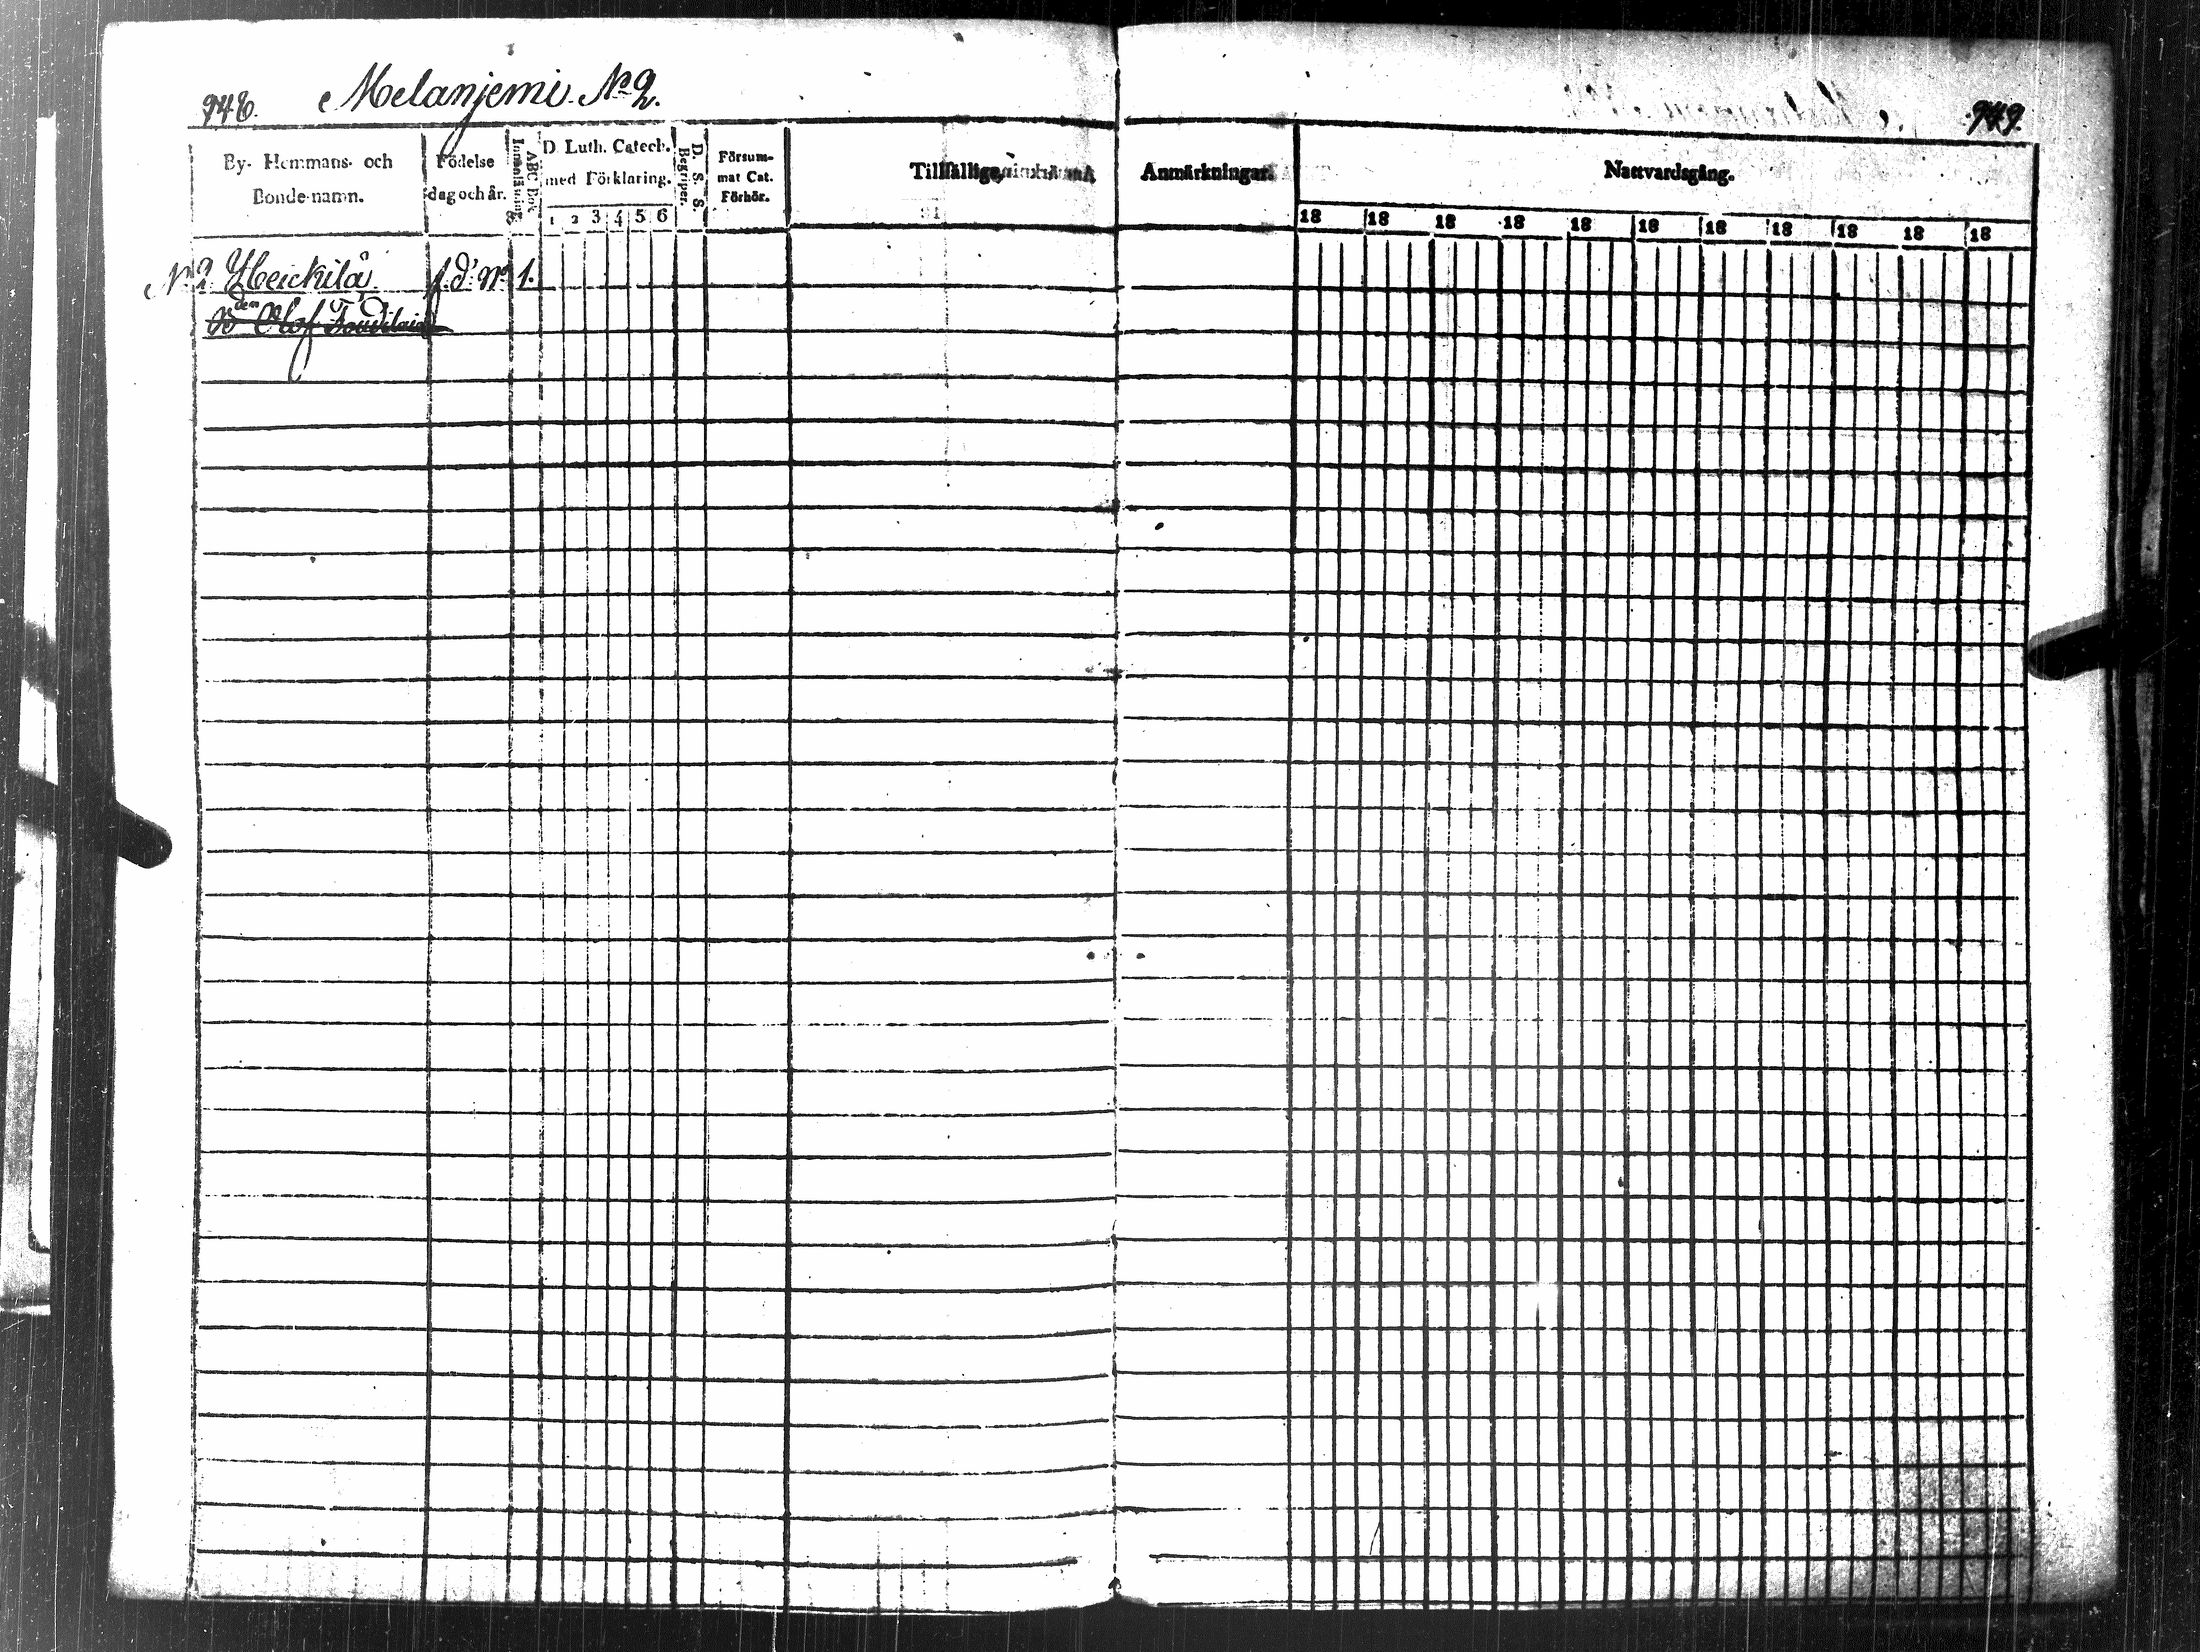 948.
Melanjemi. No 2.
949.
By- Hemmans- och
Bonde-namn.
Födelse
dag och år.
Innanläsning
ABC Bok
D. Luth. Catech.
med Förklaring.
1 2 3 4 5 6
D. S. S.
Begriper.
Försum-
mat Cat.
Förhör.
Tillfällige
Anmärkningar.
Nattvardsgång.
18 18 18 18 18 18 18 18 18 18 18
No 2 Heickilä f. d. No 1.
Bden Olof